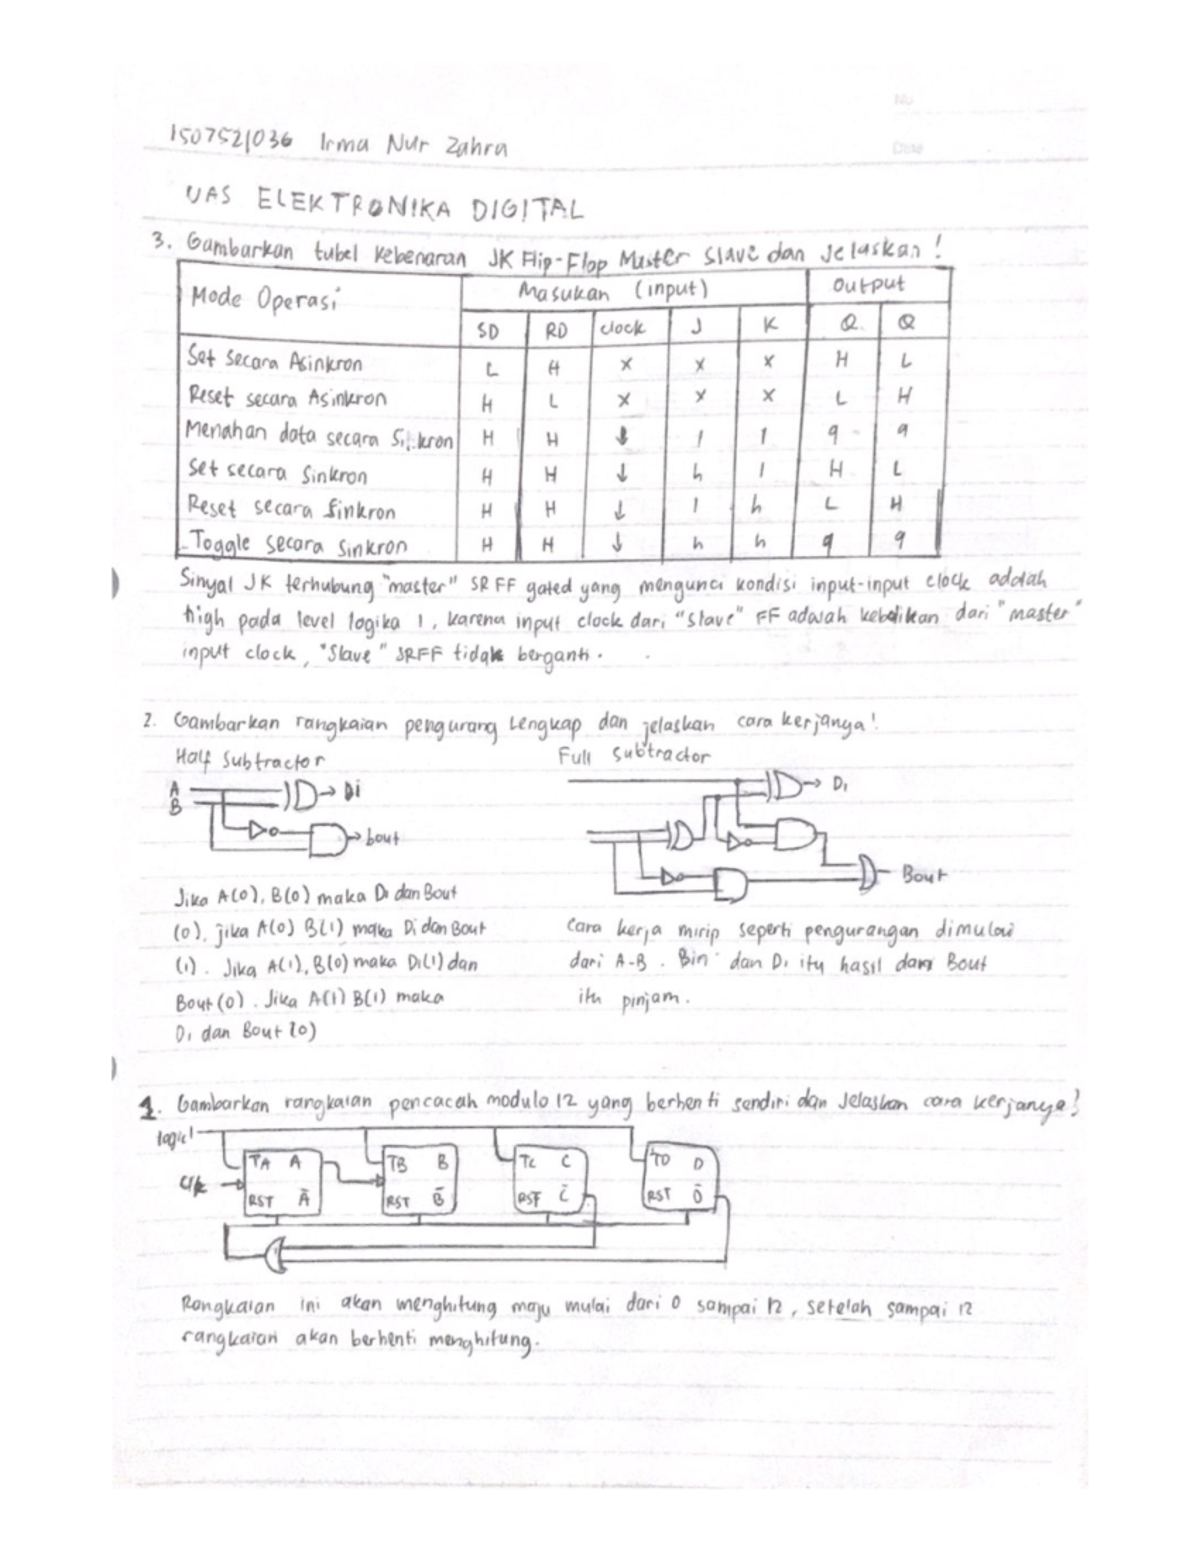 No
Date
1507521036 Irma Nur Zahra
UAS ELEKTRONIKA DIGITAL
3. Gambarkan tabel kebenaran JK Flip-Flop Master Slave dan Jelaskan!
Mode Operasi Masukan (input) Output
SD RD clock J K Q Q
Set secara Asinkron L H x x x H L
Reset secara Asinkron H L x x x L H
Menahan data secara Sinkron H H ↓ l l q q
Set secara Sinkron H H ↓ h l H L
Reset secara Sinkron H H ↓ l h L H
Toggle secara Sinkron H H ↓ h h q q
Sinyal JK terhubung "master" SR FF gated yang mengunci kondisi input-input clock adalah
high pada level logika 1, karena input clock dari "slave" FF adalah kebalikan dari "master"
input clock, "Slave" SRFF tidak berganti.
2. Gambarkan rangkaian pengurang lengkap dan jelaskan cara kerjanya!
Half Subtractor
Full Subtractor
A
B
Di
bout
Di
Bout
Jika A(0), B(0) maka Di dan Bout
(0), jika A(0) B(1) maka Di dan Bout
(1). Jika A(1), B(0) maka Di(1) dan
Bout (0). Jika A(1) B(1) maka
Di dan Bout (0)
Cara kerja mirip seperti pengurangan dimulai
dari A-B. Bin dan Di itu hasil dari Bout
itu pinjam.
1. Gambarkan rangkaian pencacah modulo 12 yang berhenti sendiri dan Jelaskan cara kerjanya!
logic 1
TA A TB B TC C TD D
Clk
RST Ā RST B̄ RST C̄ RST D̄
Rangkaian ini akan menghitung maju mulai dari 0 sampai 12, setelah sampai 12
rangkaian akan berhenti menghitung.